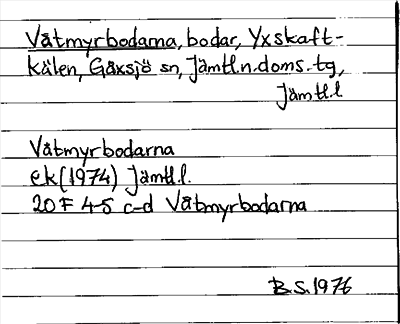 Våtmyrbodarna, bodar, Yxskaft-
kälen, Gåxsjö sn, Jämtl.n.doms.tg,
Jämtl.l
Våtmyrbodarna
ek (1974) Jämtl.l.
20 F 4-5 c-d Våtmyrbodarna
B.S. 1976